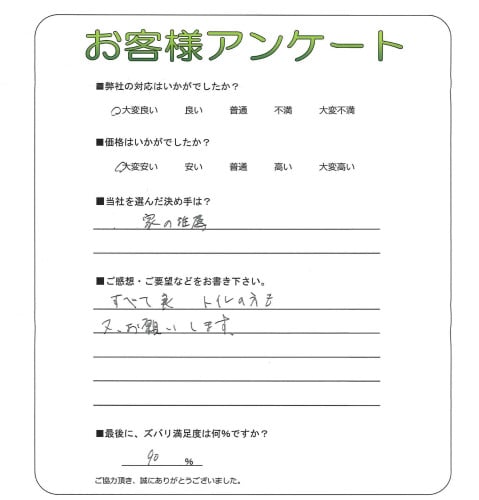 お客様アンケート
■弊社の対応はいかがでしたか?
大変良い 良い 普通 不満 大変不満
■価格はいかがでしたか?
大変安い 安い 普通 高い 大変高い
■当社を選んだ決め手は?
家の推薦
■ご感想・ご要望などをお書き下さい。
すべて良 トイレの方も
又、お願いします。
■最後に、ズバリ満足度は何%ですか?
90 %
ご協力頂き、誠にありがとうございました。